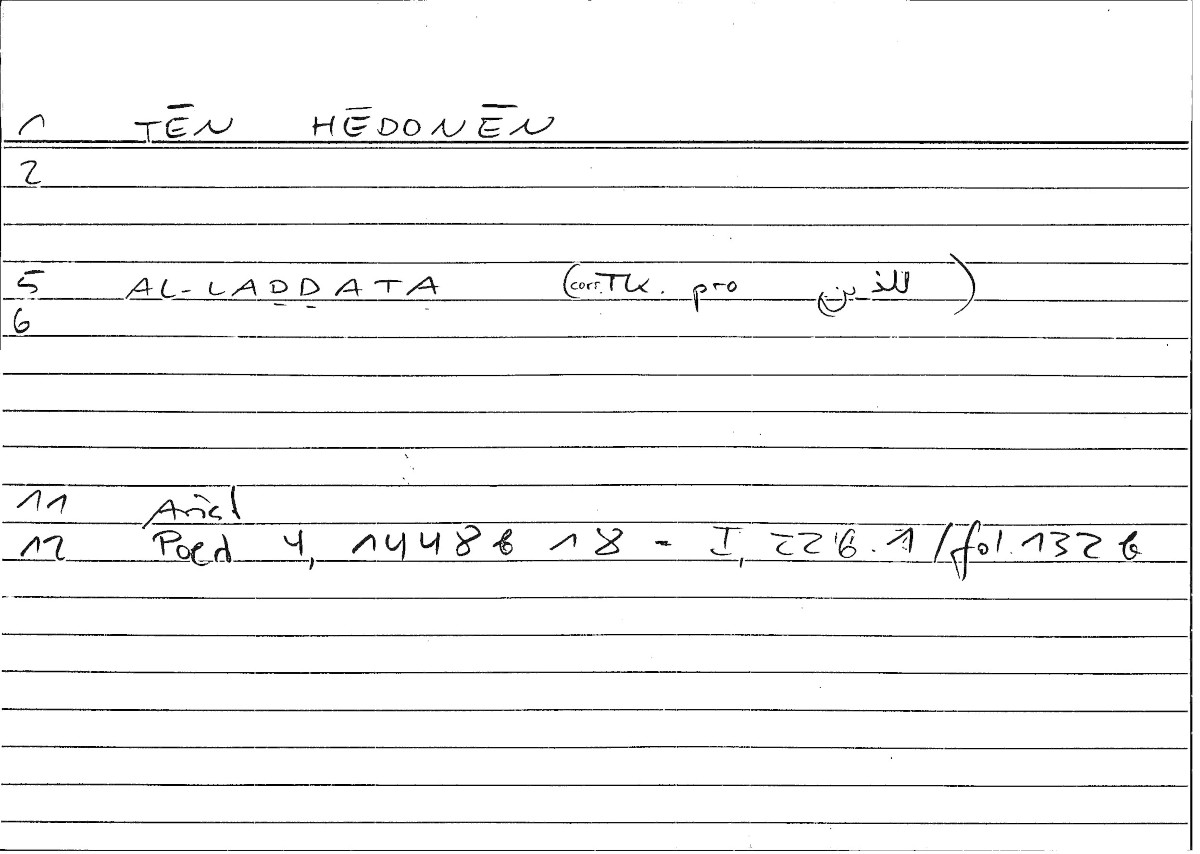 1 TĒN HĒDONĒN
2
5 AL-LAḎḎATA (corr. Tk. pro للذين)
6
11 Arist
12 Poet 4, 1448b 18 - I, 226.1/fol.132b